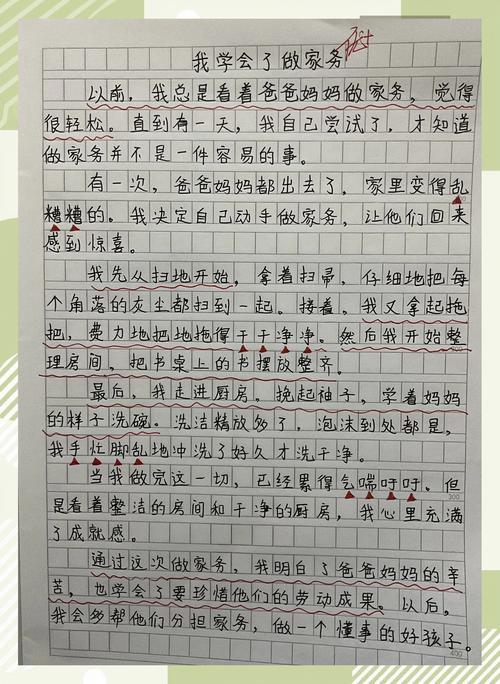 我学会了做家务
以前，我总是看着爸爸妈妈做家务，觉得
很轻松。直到有一天，我自己尝试了，才知道
做家务并不是一件容易的事。
有一次，爸爸妈妈都出去了，家里变得乱
糟糟的。我决定自己动手做家务，让他们回来
感到惊喜。
我先从扫地开始，拿着扫帚，仔细地把每
个角落的灰尘都扫到一起。接着，我又拿起拖
把，费力地把地拖得干干净净。然后我开始整
理房间，把书桌上的书摆放整齐。
最后，我走进厨房。挽起袖子，学着妈妈
的样子洗碗。洗洁精放多了，泡沫到处都是，
我手忙脚乱地冲洗了好久才洗干净。
当我做完这一切，已经累得气喘吁吁。但
是看着整洁的房间和干净的厨房，我心里充满
300
了成就感。
通过这次做家务，我明白了爸爸妈妈的辛
苦，也学会了要珍惜他们的劳动成果。以后，
我会多帮他们分担家务，做一个懂事的好孩子。
400